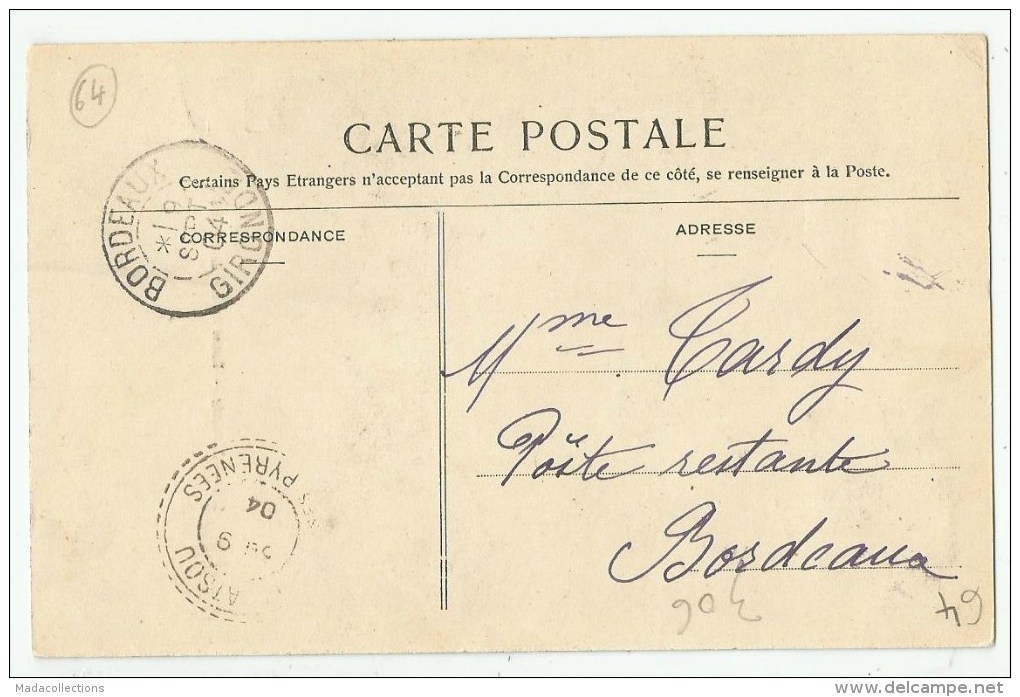 64
CARTE POSTALE
Certains Pays Etrangers n'acceptant pas la Correspondance de ce côté, se renseigner à la Poste.
BORDEAUX
GIRONDE
CORRESPONDANCE
ADRESSE
Mme Cardy
Poste restante
Bordeaux
PYRENEES
04
9
306
64
Madacollections
www.delcampe.net